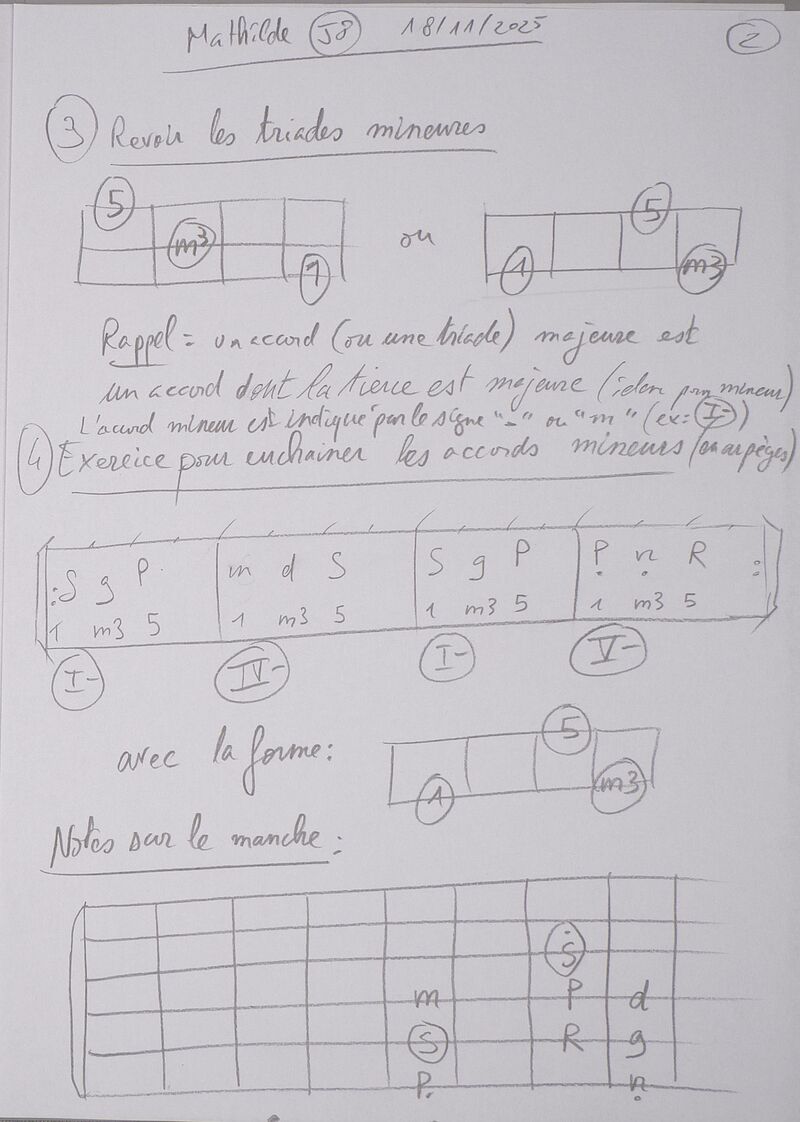 Mathilde J8 18/11/2025 2
3 Revoir les triades mineures
5 m3 1 ou 1 5 m3
Rappel = un accord (ou une triade) majeure est
un accord dont la tierce est majeure (idem pour mineur)
L'accord mineur est indiqué par le signe "-" ou "m" (ex: I-)
4 Exercice pour enchainer les accords mineurs (en arpèges)
:S g P m d S S g P P n R :
1 m3 5 1 m3 5 1 m3 5 1 m3 5
I- IV- I- V-
avec la forme: 1 5 m3
Notes sur le manche:
S
m P d
S R g
P n